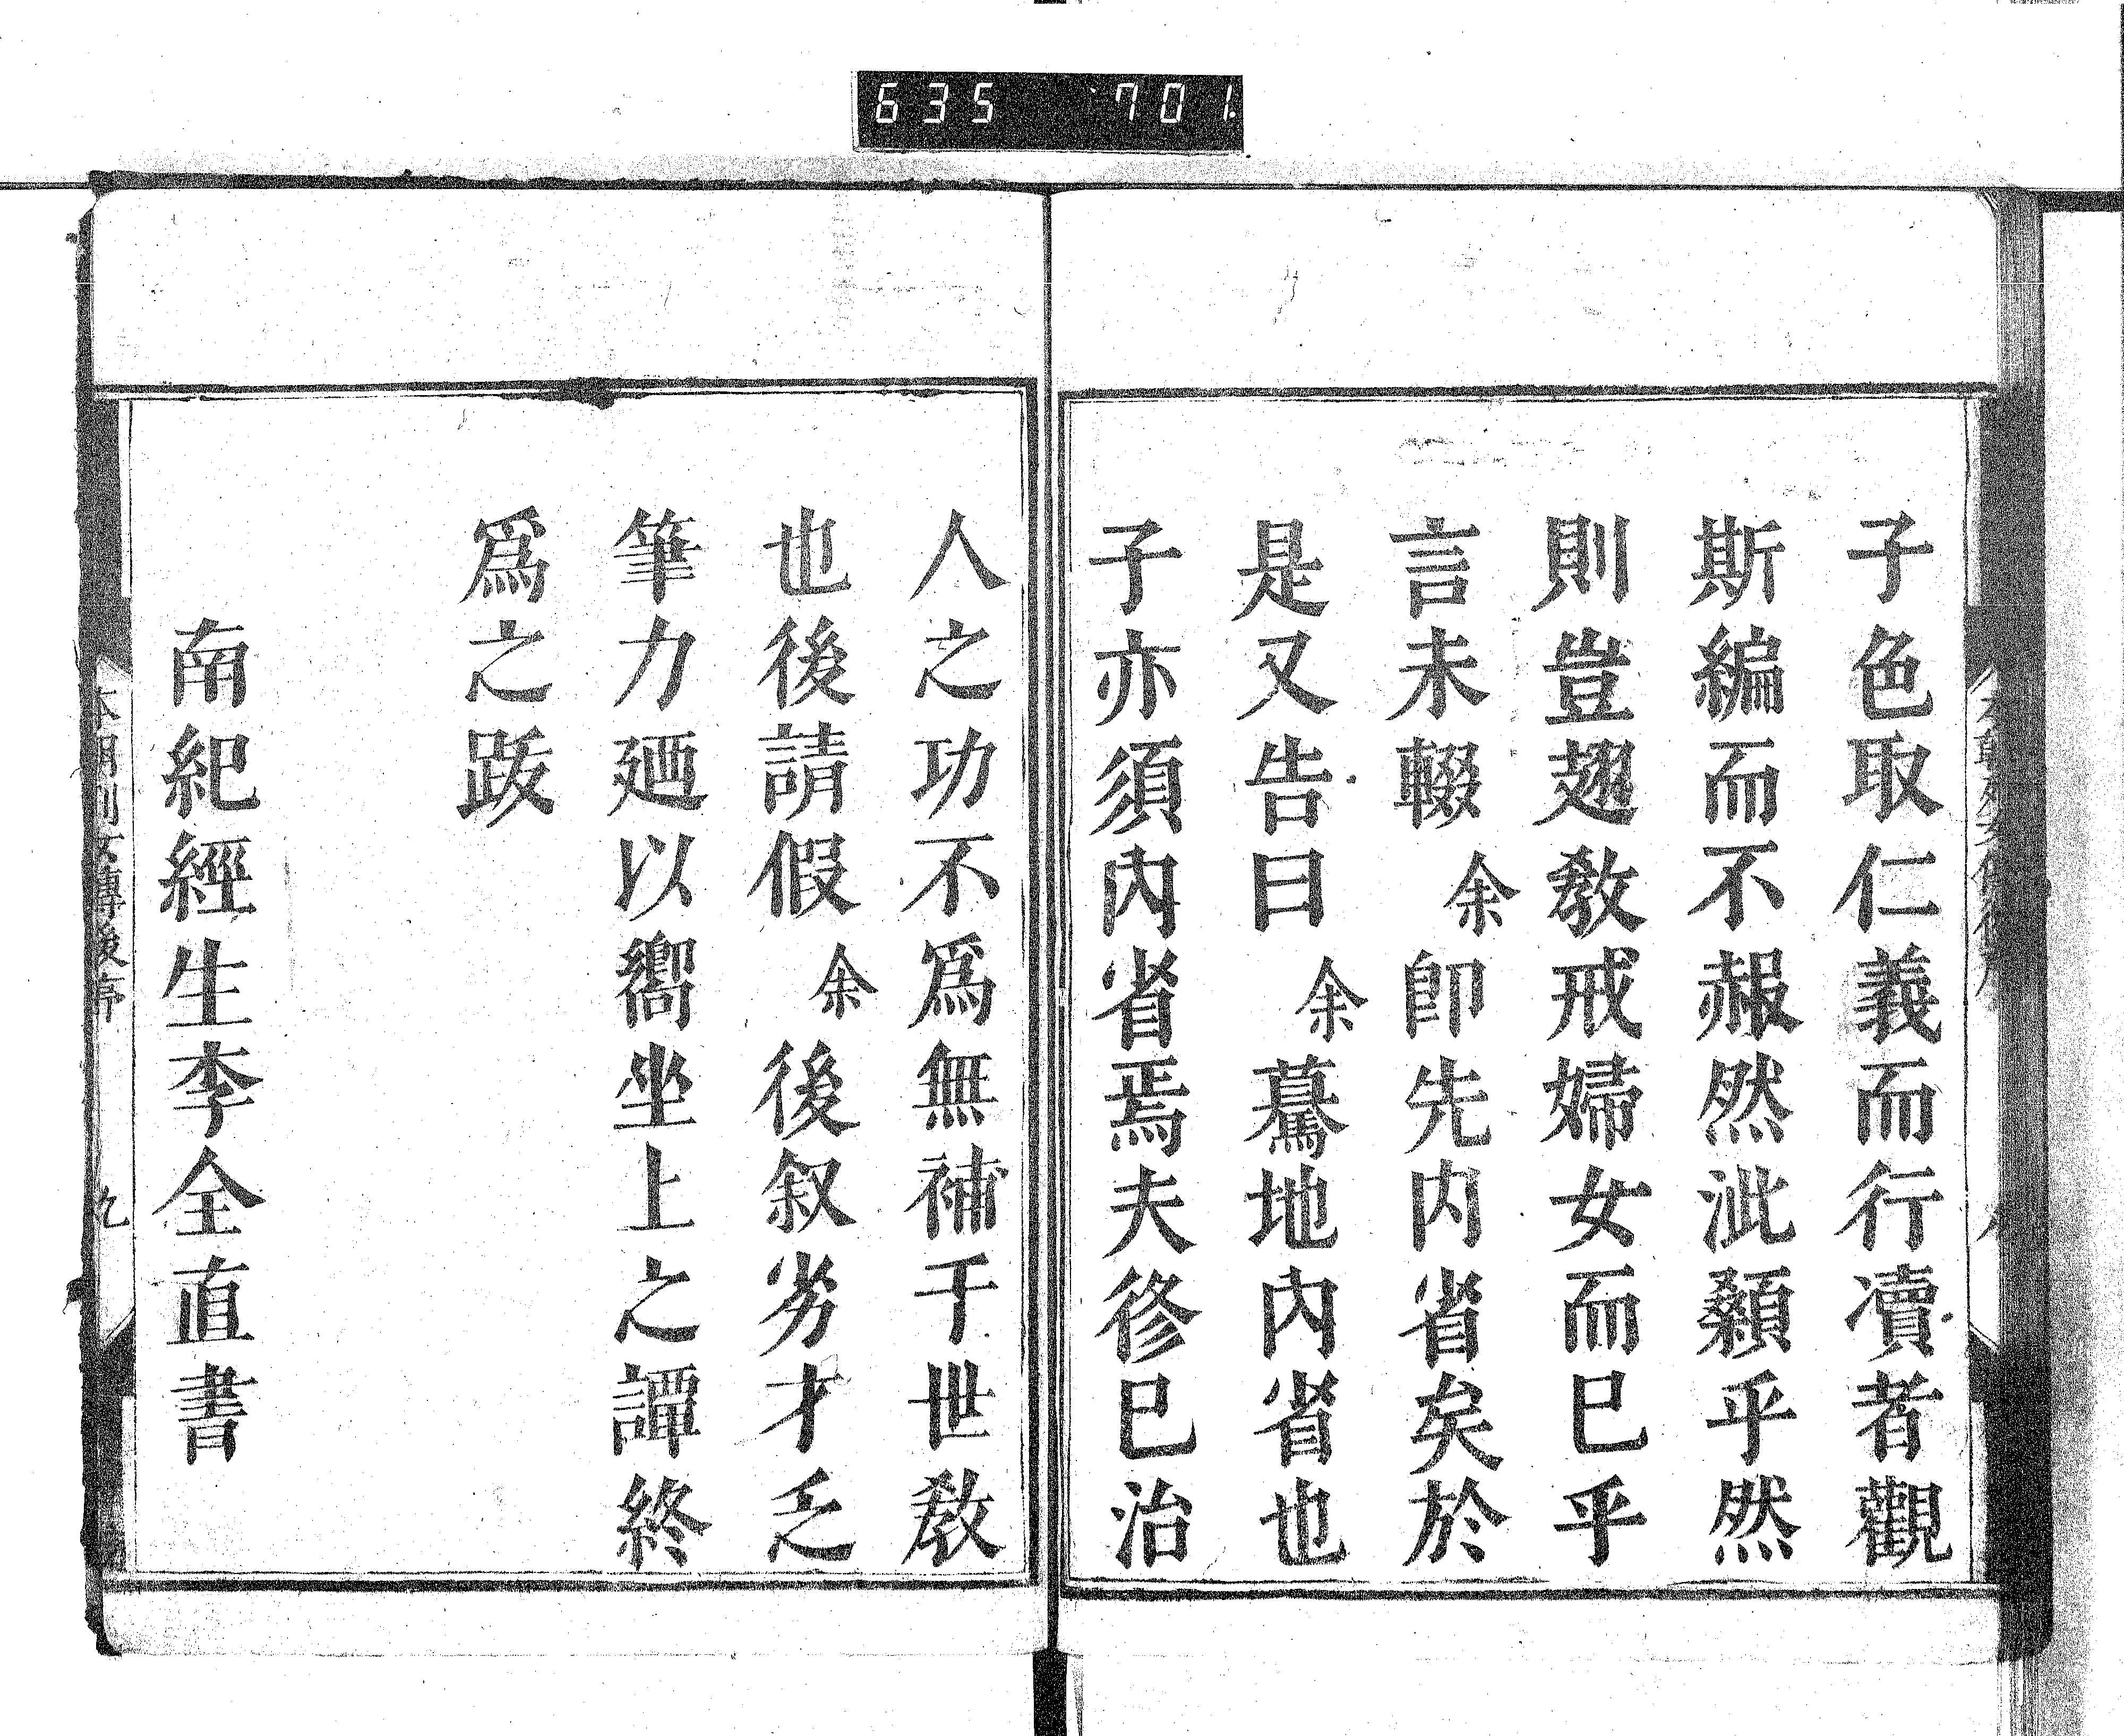 635 701
子色取仁義而行凟者觀
斯編而不赧然泚顙乎然
則豈翅教戒婦女而已乎
言未輟余卽先内省矣於
是又告曰余驀地内省也
子亦須内省焉夫修已治
人之功不爲無補于世教
也後請假余後叙劣才乏
筆力廼以嚮坐上之譚終
爲之跋
南紀經生李全直書
本朝列女傳後序
九